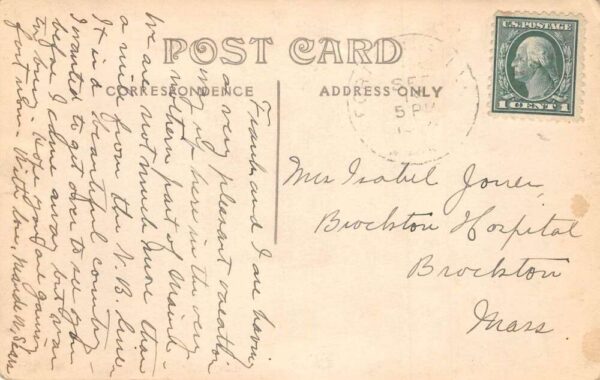 POST CARD
CORRESPONDENCE
ADDRESS ONLY
U.S. POSTAGE
1 CENT 1
SEP
5 PM
Frank and I are having
a very pleasant vacation
way up here in the very
northern part of Maine
We are not much more than
a mile from the N.B. line.
It is a beautiful country -
I wanted to get over to see you
before I came away but was
too busy - Hope you are gaining
fast now - With love,
Mrs Isabel Jones,
Brockton Hospital
Brockton
Mass.